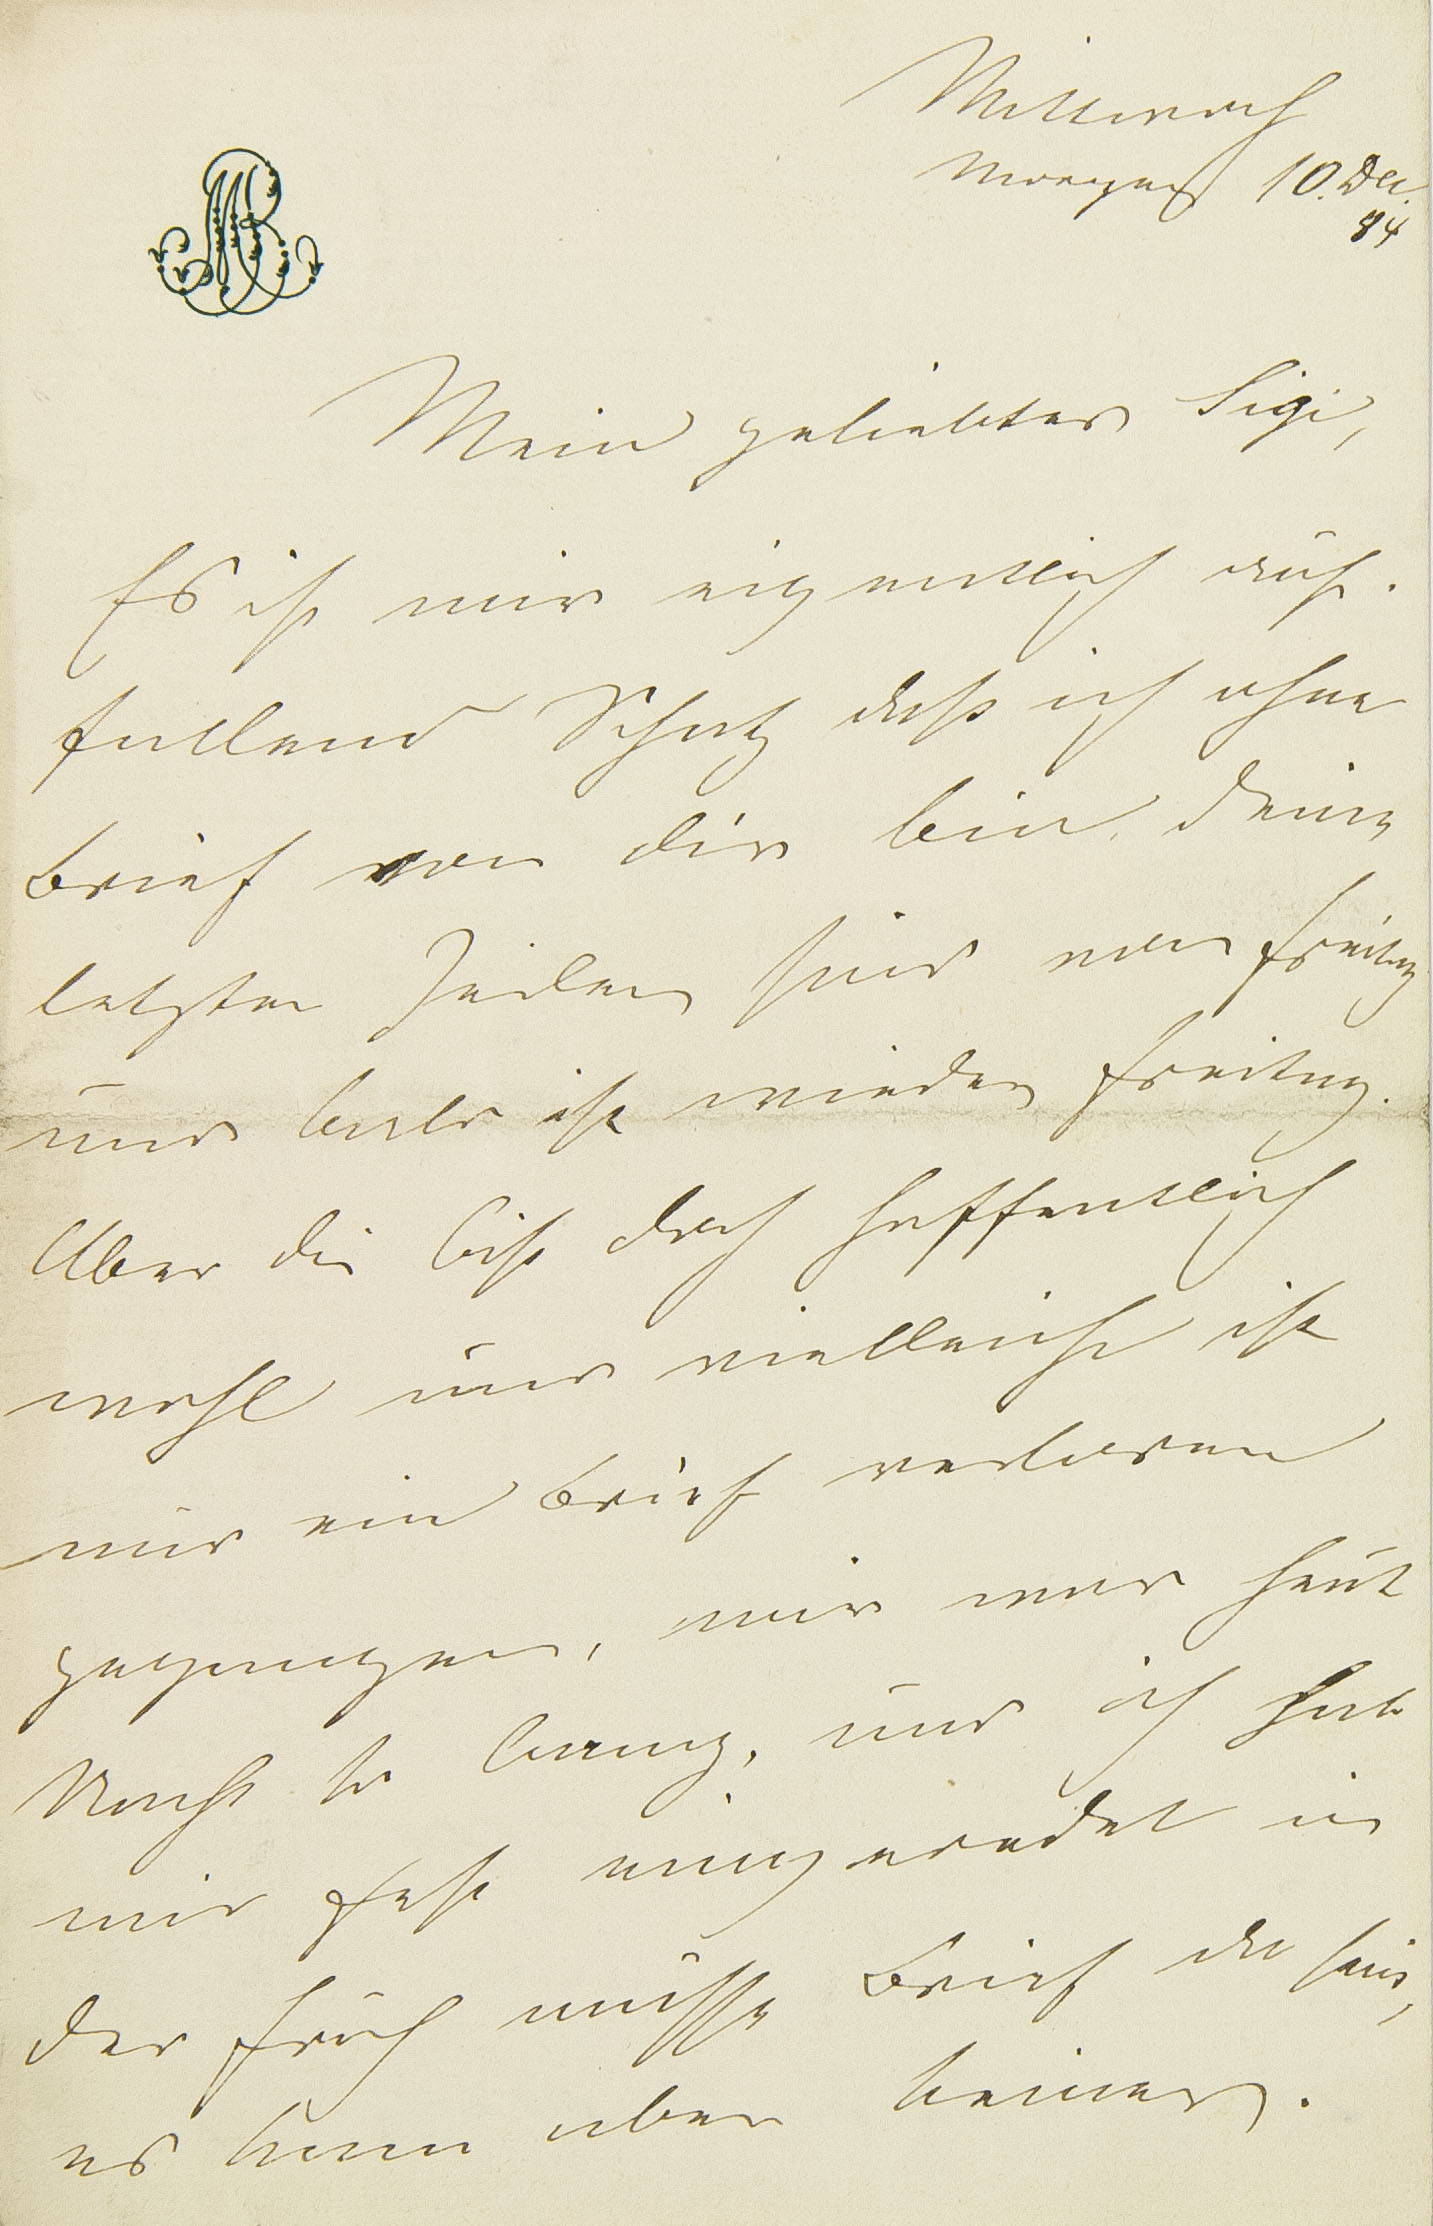 MB
Mittwoch
Morgens 10. Dec.
84
Mein geliebter Sigi,
Es ist mir eigentlich auf-
fallend Schatz daß ich ohne
Brief von dir bin, deine
letzten Zeilen sind von Freitag
und bald ist wieder Freitag.
Aber du bist doch hoffentlich
wohl und vielleicht ist
nur ein Brief verloren
gegangen, mir war heut
Nacht so bang, und ich hab
mir fest eingeredet in
der Früh müsse Brief da sein,
es kam aber keiner.